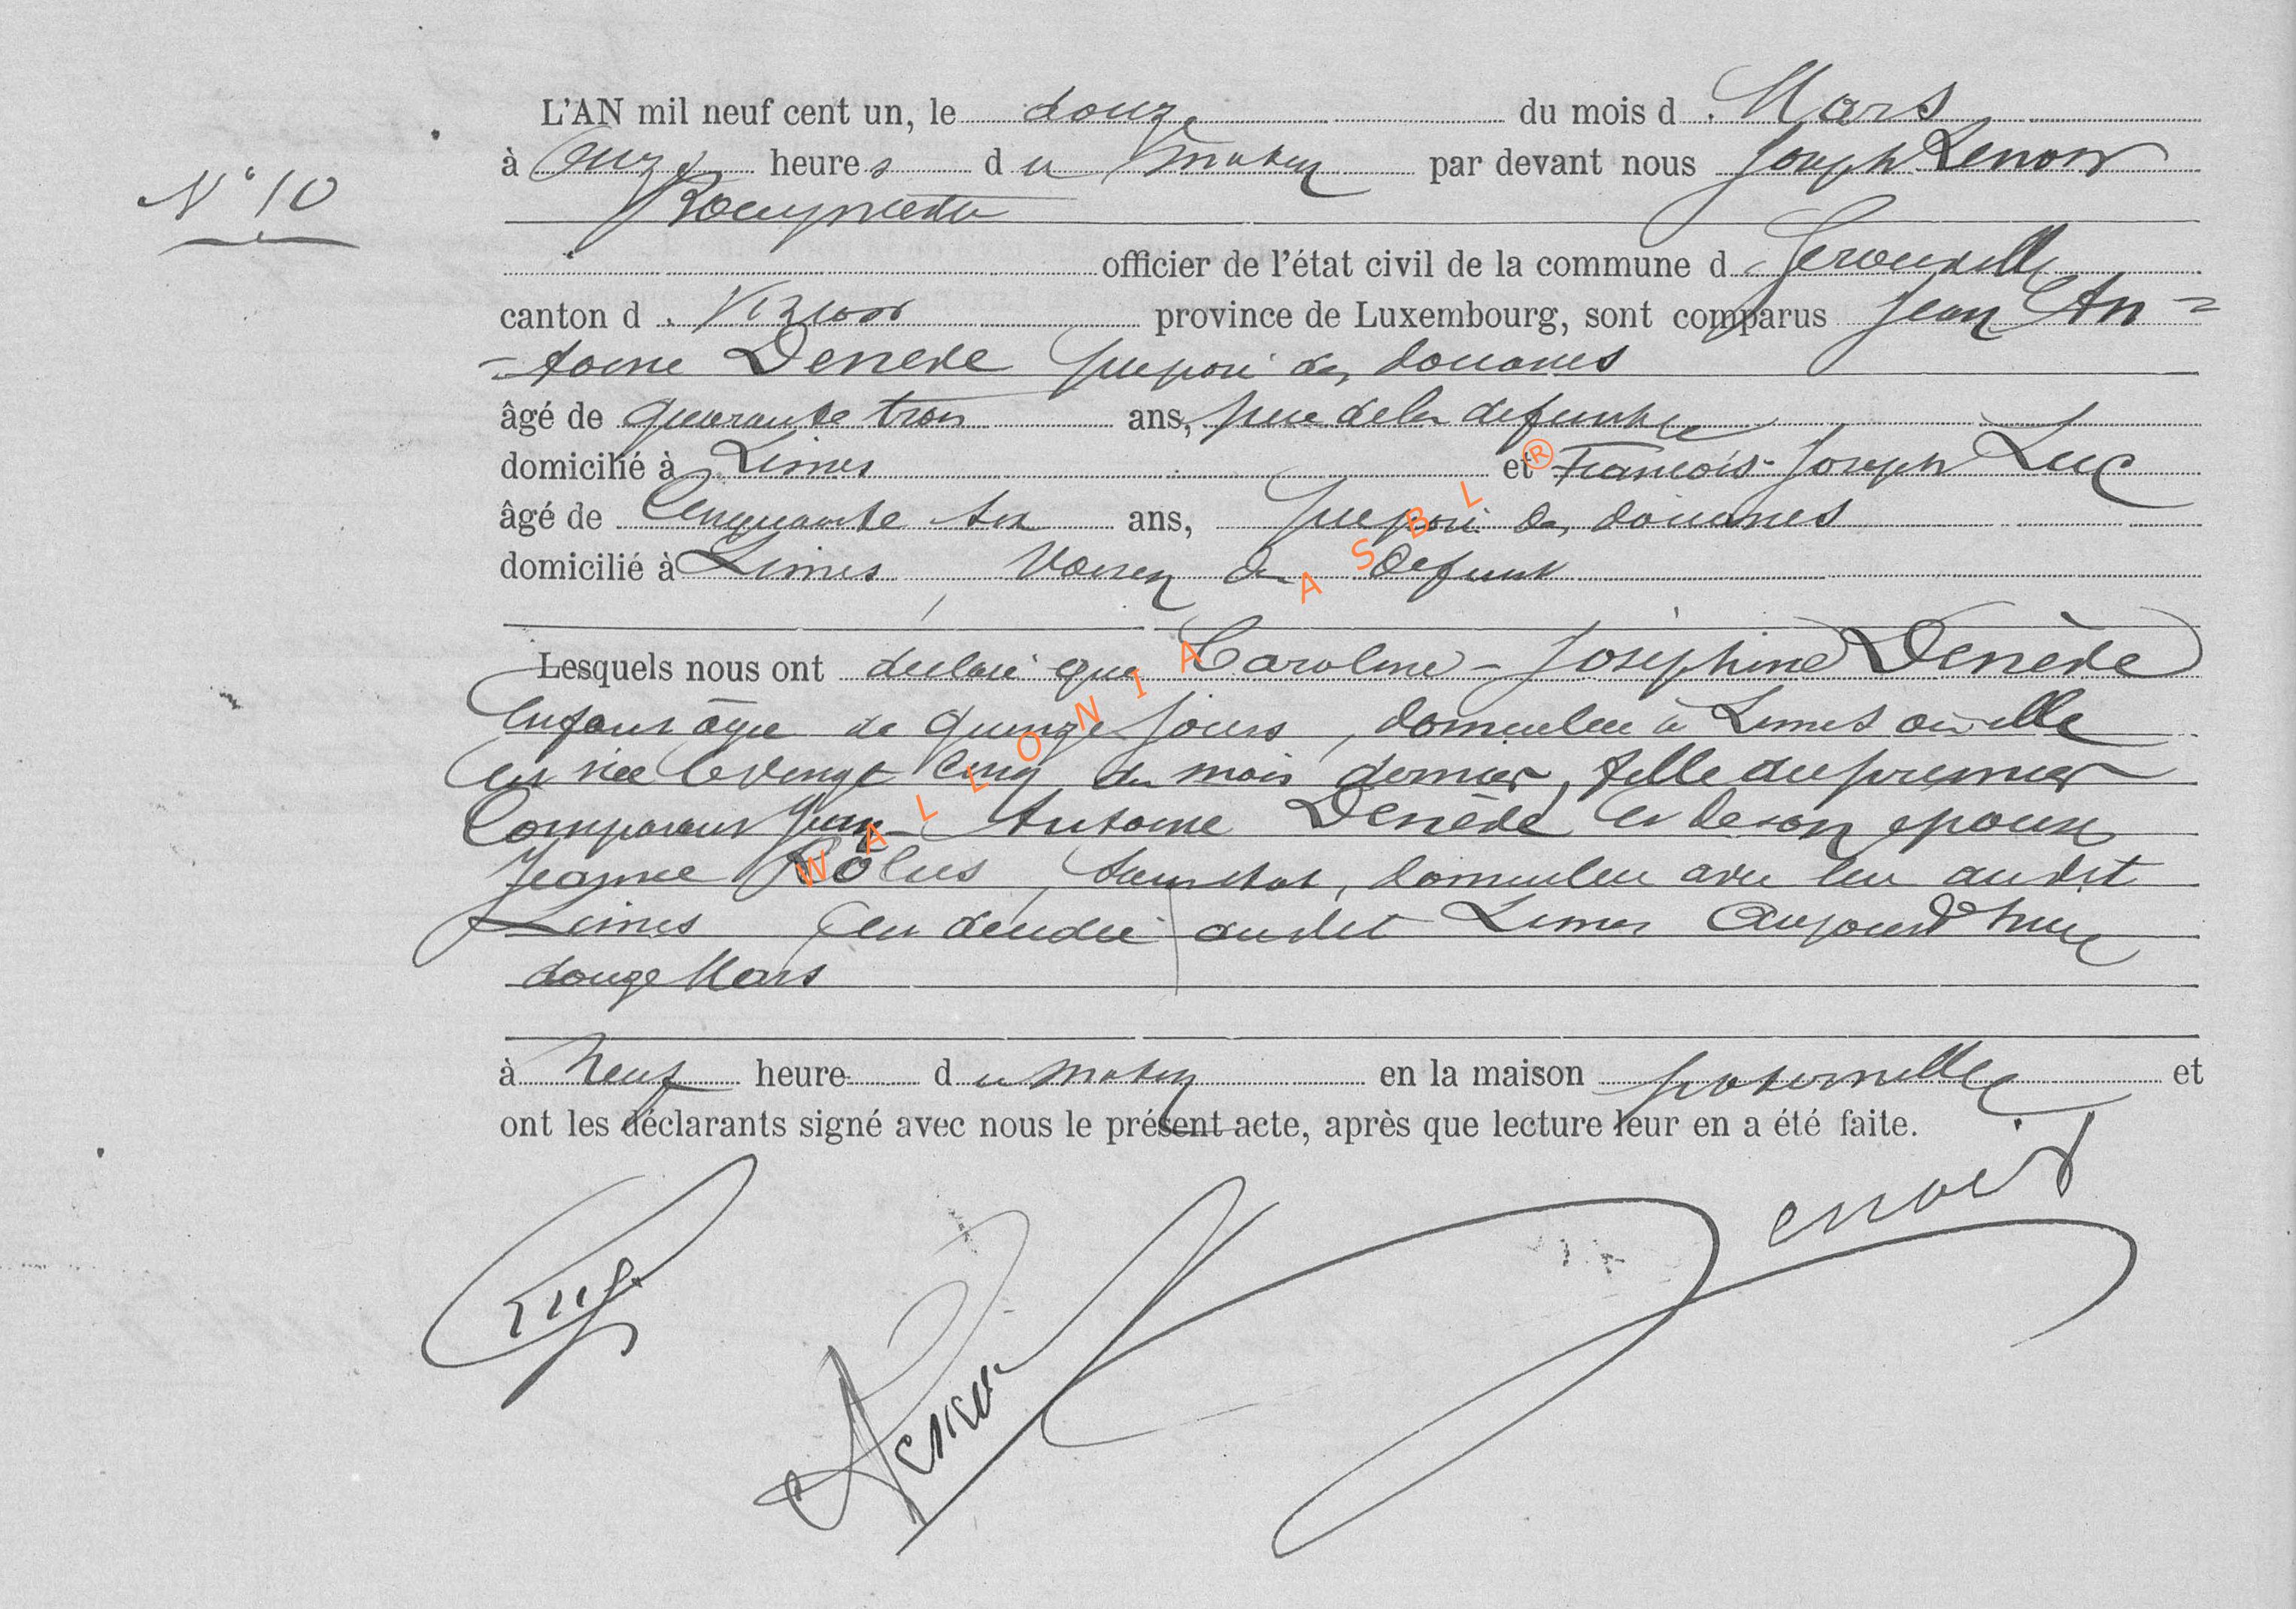 L'AN mil neuf cent un, le douze du mois d. Mars
N° 10
à Onze heures du matin par devant nous Joseph Lenoir
Bourgmestre
officier de l'état civil de la commune de Gerouville
canton d. Virton province de Luxembourg, sont comparus Jean An=
=toine Denève préposé des douanes
âgé de quarante trois ans, père de la défunte
domicilié à Limes et François-Joseph Luc
âgé de Cinquante six ans, préposé des douanes
domicilié à Limes, Voisin du défunt
Lesquels nous ont déclaré que Caroline-Joséphine Denève
Enfant âgée de quinze jours, domiciliée à Limes où elle
est née le vingt cinq du mois dernier, fille du premier
Comparant Jean-Antoine Denève et de son épouse
Jeanne Rolus, sans état, domiciliée avec lui audit
Limes est décédée audit Limes Aujourd'hui
douze Mars
à Neuf heure du matin en la maison paternelle et
ont les déclarants signé avec nous le présent acte, après que lecture leur en a été faite.
Luc
Lenoir
WALLONIA ASBL ®